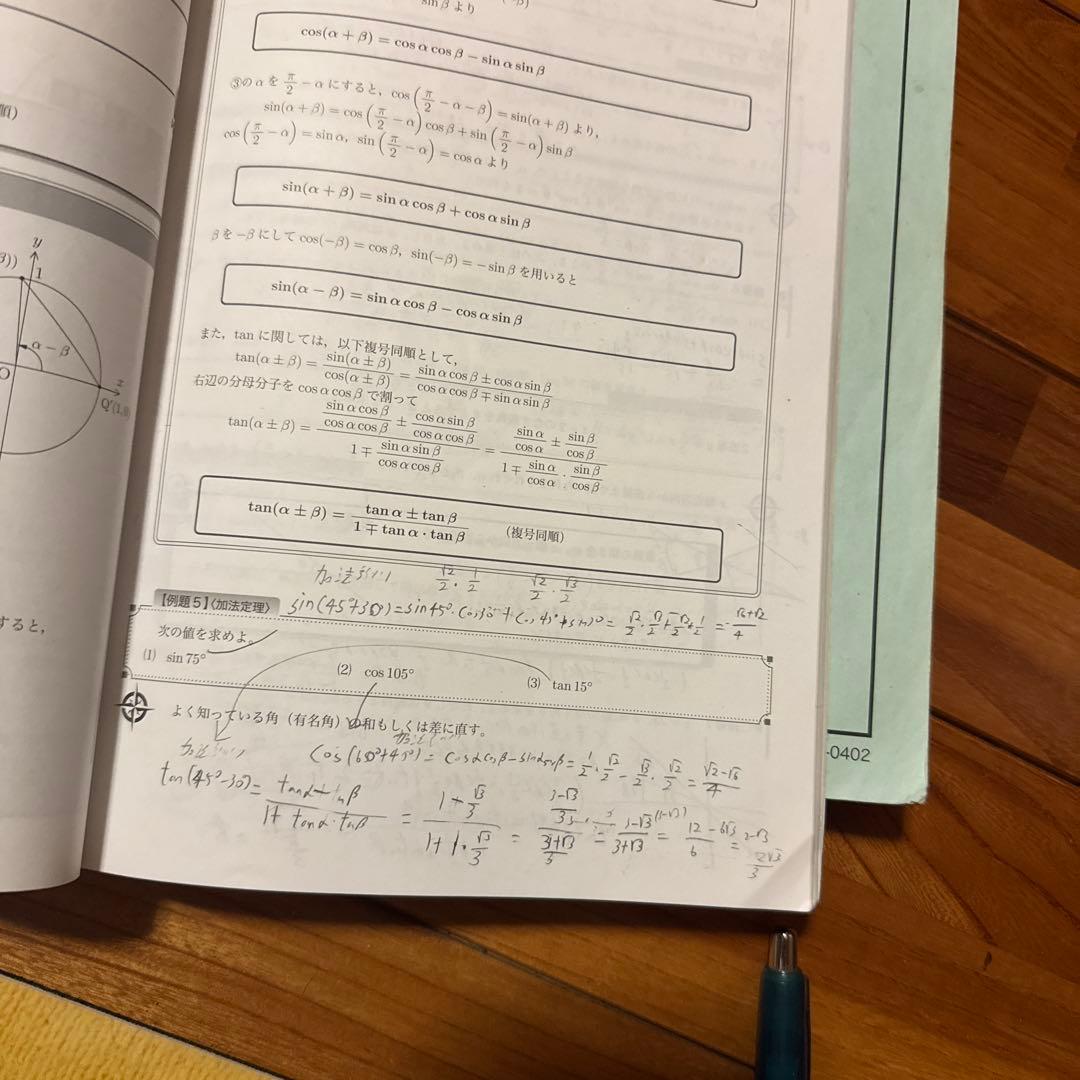 sin β より
cos(α + β) = cos α cos β − sin α sin β
③の α を π/2 − α にすると, cos(π/2 − α − β) = sin(α + β) より,
sin(α + β) = cos(π/2 − α) cos β + sin(π/2 − α) sin β
cos(π/2 − α) = sin α, sin(π/2 − α) = cos α より
sin(α + β) = sin α cos β + cos α sin β
β を −β にして cos(−β) = cos β, sin(−β) = − sin β を用いると
sin(α − β) = sin α cos β − cos α sin β
また, tan に関しては, 以下複号同順として,
tan(α ± β) = sin(α ± β)/cos(α ± β) = (sin α cos β ± cos α sin β)/(cos α cos β ∓ sin α sin β)
右辺の分母分子を cos α cos β で割って
tan(α ± β) = (sin α cos β/cos α cos β ± cos α sin β/cos α cos β)/(1 ∓ sin α sin β/cos α cos β) = (sin α/cos α ± sin β/cos β)/(1 ∓ sin α/cos α · sin β/cos β)
tan(α ± β) = (tan α ± tan β)/(1 ∓ tan α · tan β) (複号同順)
加法 √2/2 · 1/2 √2/2 · √3/2
【例題5】〈加法定理〉 sin(45°+30°)=sin45°·cos30°+
次の値を求めよ.
(1) sin 75°
(2) cos 105°
(3) tan 15°
よく知っている角（有名角）の和もしくは差に直す.
cos(60°+45°) = cosαcosβ−sinαsinβ = 1/2 · √2/2 − √3/2 · √2/2 = (√2−√6)/4
tan(45°−30°) =
= (3−√3)/(3+√3) = (12−6√3)/6 =
y
1
α − β
O
x
Q'(1,0)
すると,
-0402